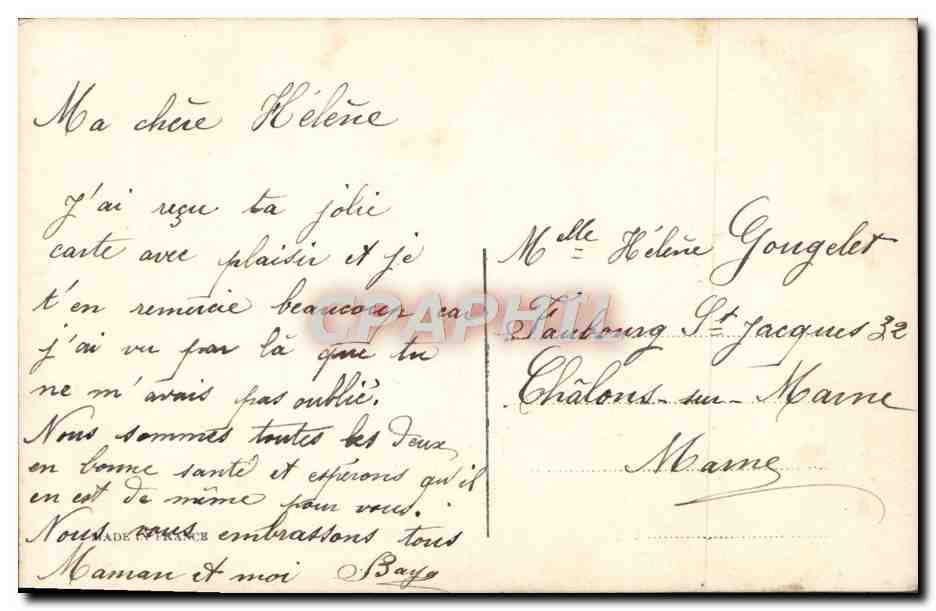 Ma chère Hélène
J'ai reçu ta jolie
carte avec plaisir et je
t'en remercie beaucoup car
j'ai vu par là que tu
ne m'avais pas oublié.
Nous sommes toutes les deux
en bonne santé et espérons qu'il
en est de même pour vous.
Nous vous embrassons tous
MADE IN FRANCE
Maman et moi
Melle Hélène Gougelet
Faubourg St Jacques 32
Châlons-sur-Marne
Marne
CPAPHIL